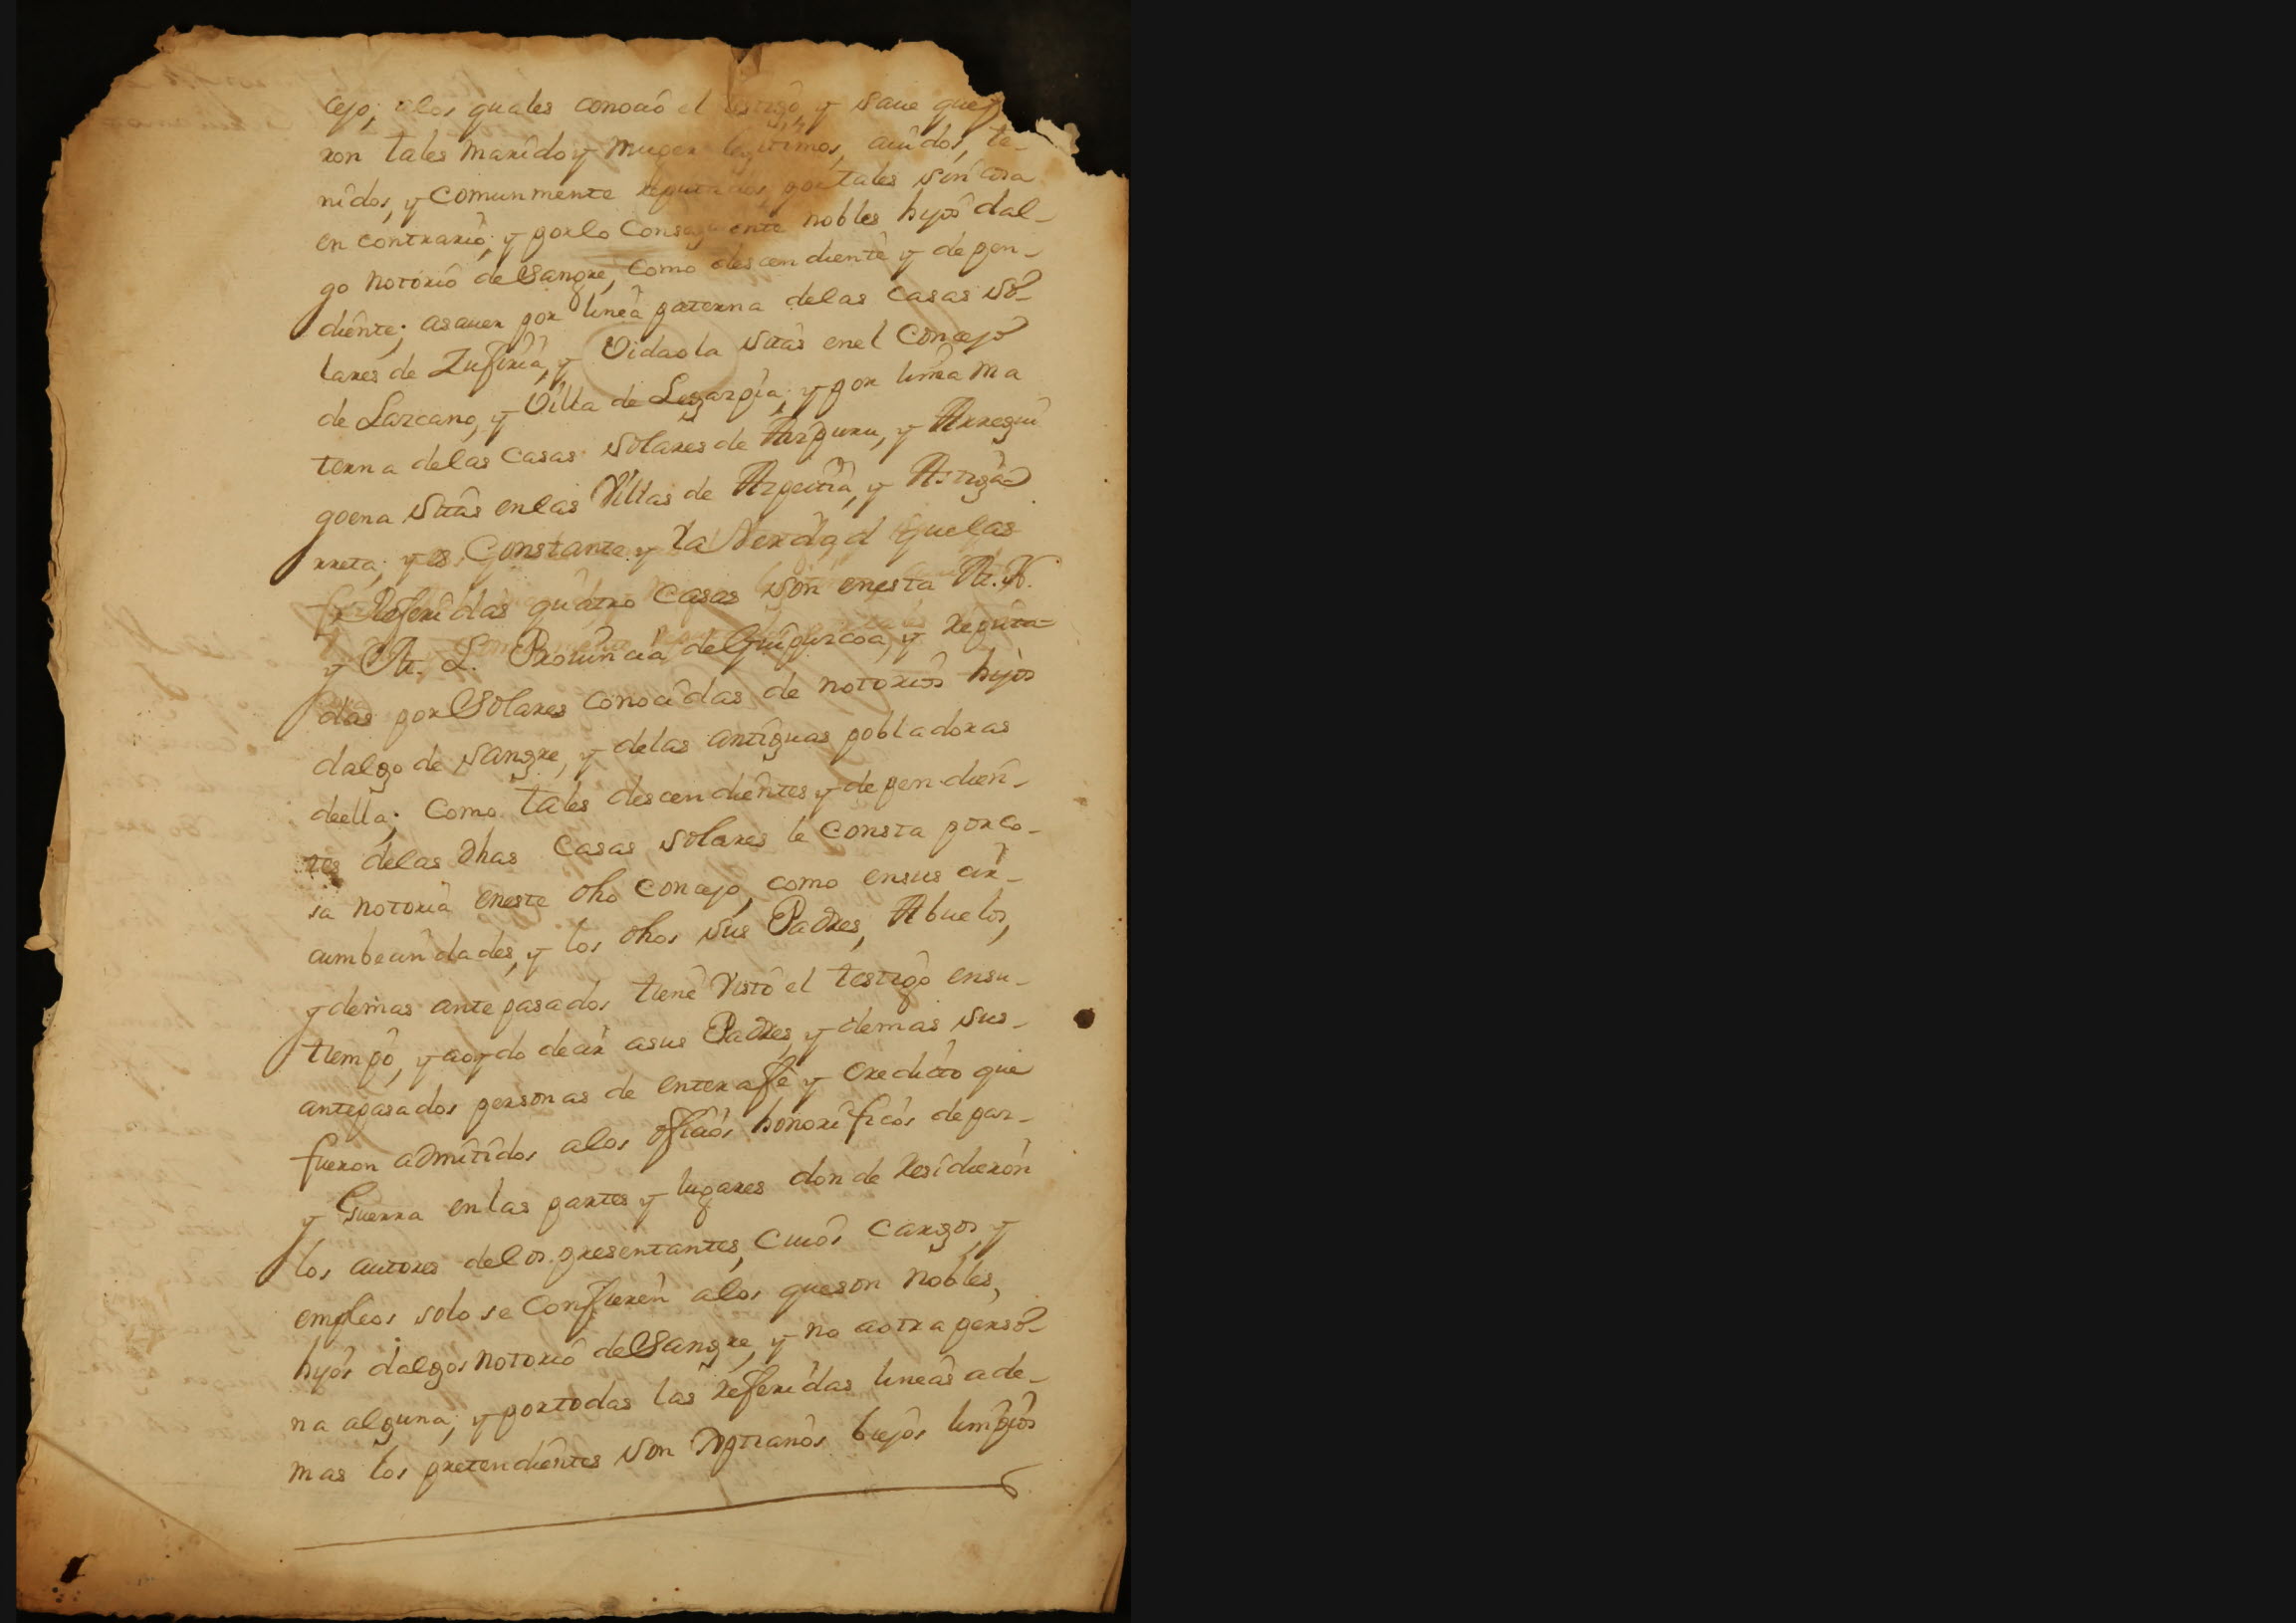 cejo; alos quales conoció el testigo, y saue que
ron tales marido y muger legitimos, auidos, te-
nidos, y comunmente reputados por tales sin cosa
en contrario; y por lo Conseguente nobles hijos dal-
go notorio de Sangre, como descendiente y depen-
diente; asauer por linea paterna delas casas so-
lares de Zufiria, y Vidaola sitas enel Concejo
de Lazcano, y Villa de Legazpia; y por linea ma
terna delas casas solares de Aizpuru, y Arregui
goena sitas enlas Villas de Azpeitia, y Astiga-
rreta; y es Constante y la Verdad quelas
Referidas quatro casas son enesta M. N.
y M. L. Prouincia de Guipuzcoa, y reputa-
das por Solares conocidas de notorios hijos
dalgo de sangre, y delas antiguas pobladoras
deella; como tales descendientes y dependien-
tes delas dhas casas solares le consta por co-
sa notoria eneste dho concejo, como ensus cir-
cumbecindades, y los dhos sus Padres, Abuelos,
y demas antepasados tiene Visto el testigo ensu-
tiempo, y aoydo decir asus Padres, y demas sus-
antepasados personas de entera fe y credicto que
fueron admitidos alos oficios honorificos de paz-
y Guerra enlas partes y lugares donde residieron
los autores delos presentantes, cuios cargos, y
empleos solo se Confieren alos queson nobles,
hijos dalgos notorio de Sangre, y no aotra perso-
na alguna; y portodas las referidas lineas ade-
mas los pretendientes son Xptianos biejos limpios